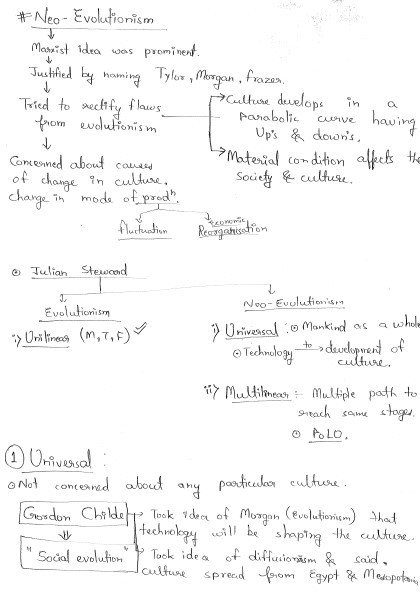 # Neo - Evolutionism
Marxist idea was prominent.
Justified by naming Tylor, Morgan, Frazer.
Tried to rectify flaws
from evolutionism
Culture develops in a
parabolic curve having
Up's & down's.
Material condition affects the
society & culture.
Concerned about causes
of change in culture,
change in mode of prodⁿ.
fluctuation
economic
Reorganisation
Julian Steward
Evolutionism
i) Unilinear (M, T, F) ✓
Neo-Evolutionism
i) Universal : Mankind as a whole
Technology to → development of
culture.
ii) Multilinear :- Multiple path to
reach same stages.
PoLO.
1 Universal :
Not concerned about any particular culture.
Gordon Childe
Took idea of Morgan (Evolutionism) that
technology will be shaping the culture.
"Social evolution"
Took idea of diffusionism & said,
culture spread from Egypt & Mesopotamia